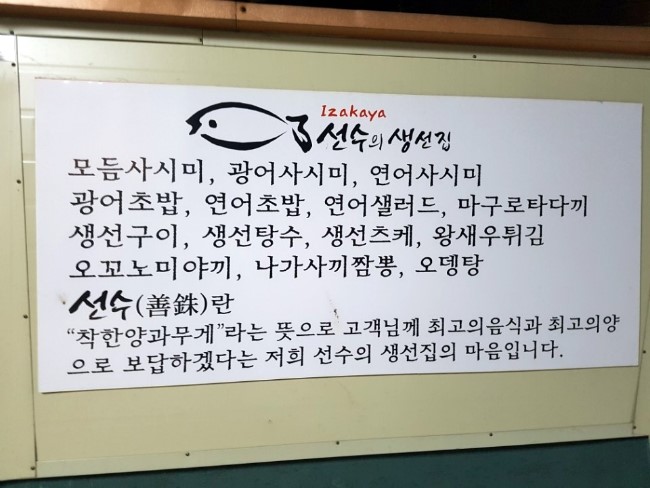 Izakaya
선수의 생선집
모듬사시미, 광어사시미, 연어사시미
광어초밥, 연어초밥, 연어샐러드, 마구로타다끼
생선구이, 생선탕수, 생선츠케, 왕새우튀김
오꼬노미야끼, 나가사끼짬뽕, 오뎅탕
선수(善銖)란
“착한양과무게”라는 뜻으로 고객님께 최고의음식과 최고의양
으로 보답하겠다는 저희 선수의 생선집의 마음입니다.